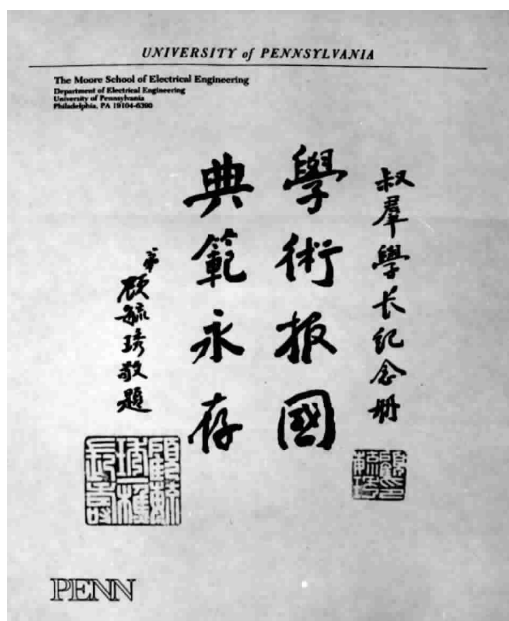 UNIVERSITY of PENNSYLVANIA
The Moore School of Electrical Engineering
Department of Electrical Engineering
University of Pennsylvania
Philadelphia, PA 19104-6390
叔羣學长紀念册
學術报國
典範永存
弟顾毓琇敬題
顧毓琇一樵長壽
PENN